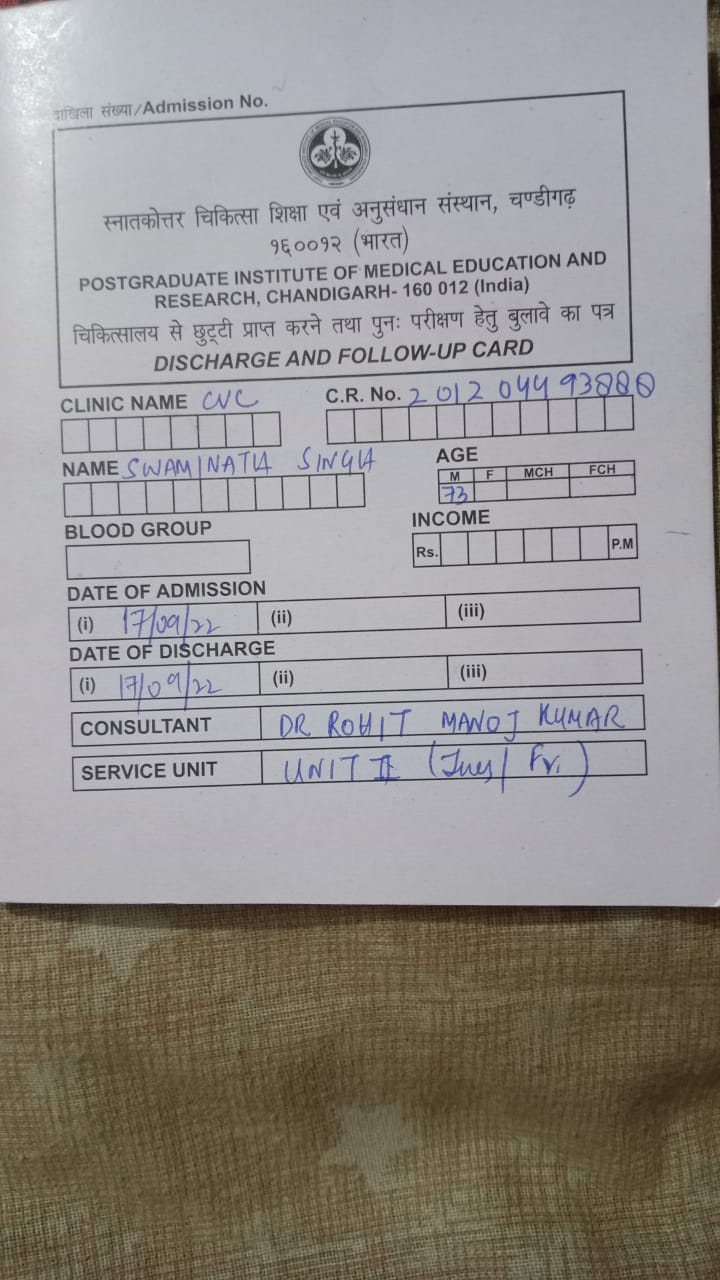 दाखिला संख्या/Admission No.
स्नातकोत्तर चिकित्सा शिक्षा एवं अनुसंधान संस्थान, चण्डीगढ़
१६००१२ (भारत)
POSTGRADUATE INSTITUTE OF MEDICAL EDUCATION AND
RESEARCH, CHANDIGARH- 160 012 (India)
चिकित्सालय से छुट्टी प्राप्त करने तथा पुनः परीक्षण हेतु बुलावे का पत्र
DISCHARGE AND FOLLOW-UP CARD
CLINIC NAME CVC C.R. No. 2012 044 93880
NAME SWAMINATH SINGH AGE
M F MCH FCH
73
BLOOD GROUP INCOME
Rs. P.M
DATE OF ADMISSION
(i) 17/09/22 (ii) (iii)
DATE OF DISCHARGE
(i) 17/09/22 (ii) (iii)
CONSULTANT DR ROHIT MANOJ KUMAR
SERVICE UNIT UNIT II (Tues/ Fr.)